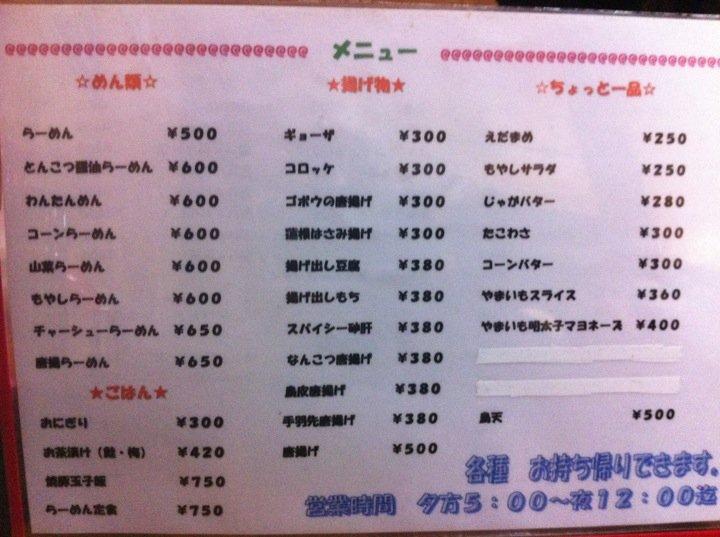 メニュー
☆めん類☆
らーめん ¥500
とんこつ醤油らーめん ¥600
わんたんめん ¥600
コーンらーめん ¥600
山菜らーめん ¥600
もやしらーめん ¥600
チャーシューらーめん ¥650
唐揚らーめん ¥650
★ごはん★
おにぎり ¥300
お茶漬け（鮭・梅） ¥420
焼豚玉子飯 ¥750
らーめん定食 ¥750
★揚げ物★
ギョーザ ¥300
コロッケ ¥300
ゴボウの唐揚げ ¥300
蓮根はさみ揚げ ¥300
揚げ出し豆腐 ¥380
揚げ出しもち ¥380
スパイシー砂肝 ¥380
なんこつ唐揚げ ¥380
鳥皮唐揚げ ¥380
手羽先唐揚げ ¥380
唐揚げ ¥500
☆ちょっと一品☆
えだまめ ¥250
もやしサラダ ¥250
じゃがバター ¥280
たこわさ ¥300
コーンバター ¥300
やまいもスライス ¥360
やまいも明太子マヨネーズ ¥400
鳥天 ¥500
各種 お持ち帰りできます。
営業時間 夕方5：00～夜12：00迄